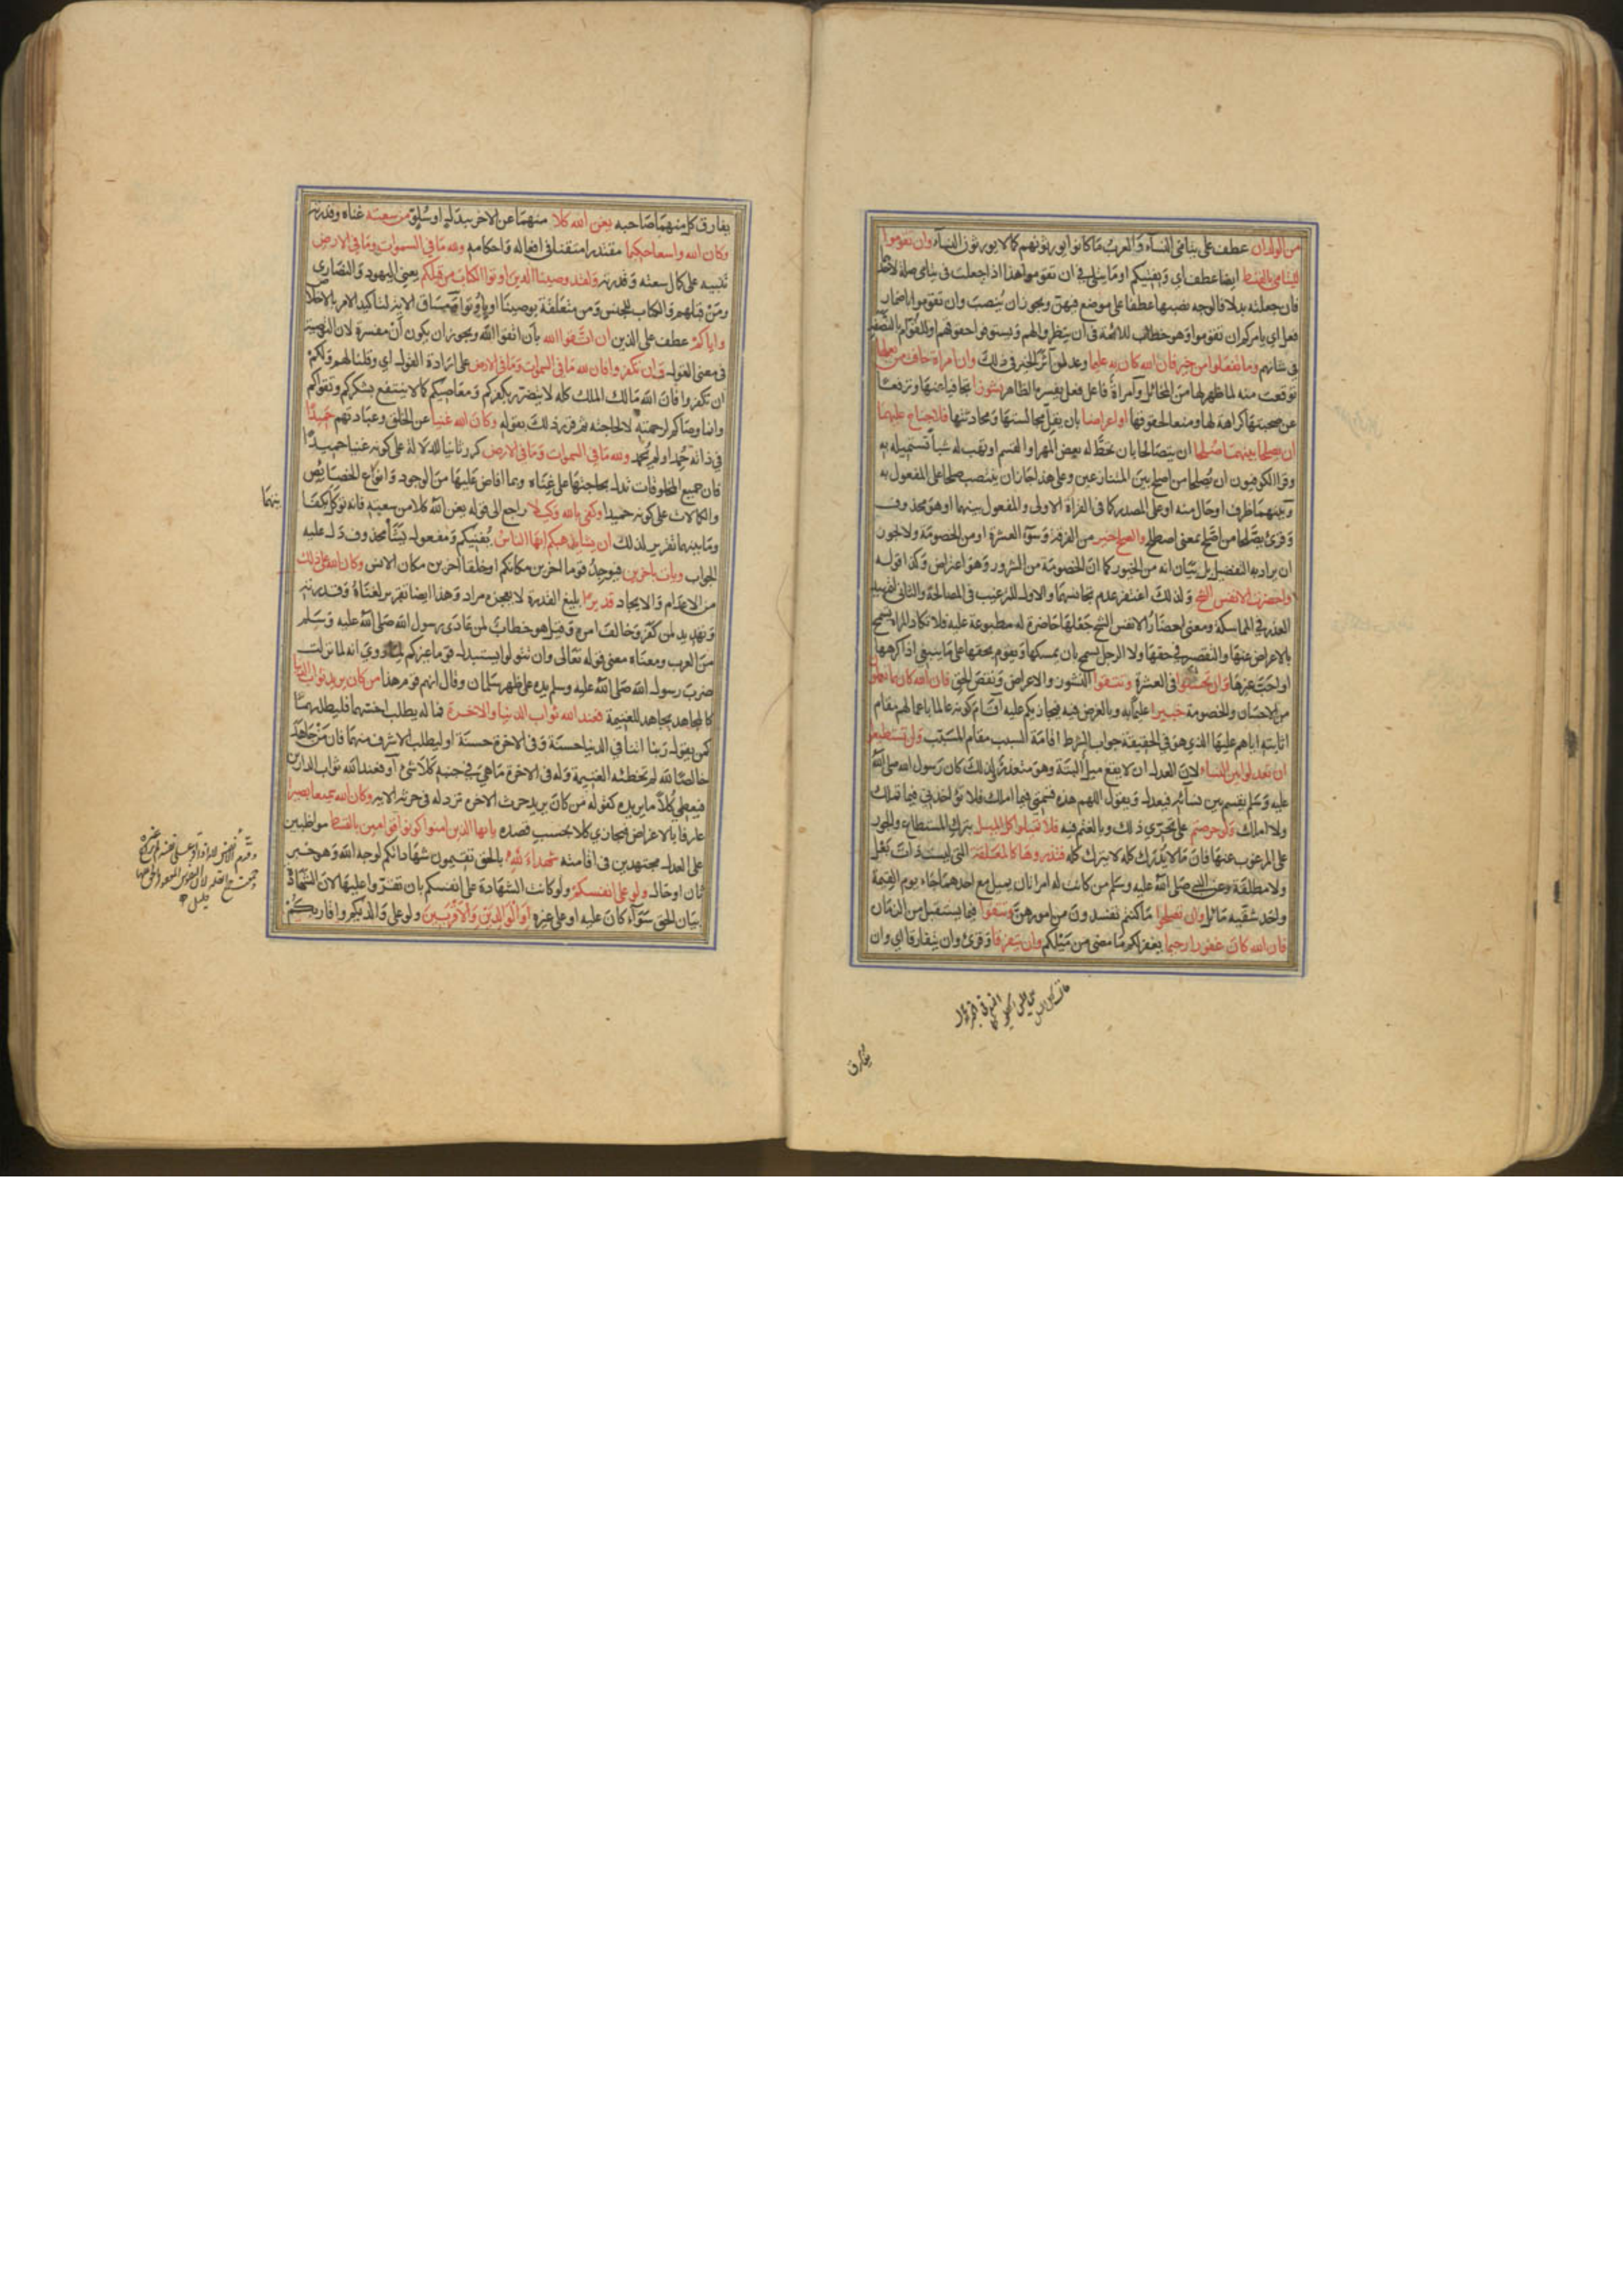 من الولدان عطف على يتامى النساء والعرب ما كانوا يورثونهم كما لا يورثون النساء وان تقوموا
لليتامى بالقسط ايضا عطف اي ويفتيكم او ما يتلى في ان تقوموا هذا اذا جعلت في يتامى صلة لاحدهما
فان جعلته بدلا فالوجه نصبهما عطفا على موضع فيهن ويجوز ان ينصب وان تقوموا باضمار
فعل اي يامركم ان تقوموا وهو خطاب للائمة في ان ينظروا لهم ويستوفوا حقوقهم او للقوام بالنصفة
في شانهم وما تفعلوا من خير فان الله كان به عليما وعد لمن آثر الخير في ذلك وان امراة خافت من بعلها
توقعت منه لما ظهر لها من المخائل وامراة فاعل فعل يفسره الظاهر نشوزا تجافيا عنها وترفعا
عن صحبتها كراهة لها ومنعا لحقوقها او اعراضا بان يقل مجالستها ومحادثتها فلا جناح عليهما
ان يصلحا بينهما صلحا ان يتصالحا بان تحط له بعض المهر او القسم او تهب له شيأ تستميله به
وقرا الكوفيون ان يصلحا من اصلح بين المتنازعين وعلى هذا جاز ان ينتصب صلحا على المفعول به
وبينهما ظرف او حال منه او على المصدر كما في القراة الاولى والمفعول بينهما او هو محذوف
وقرئ يصلحا من اصلح بمعنى اصطلح والصلح خير من الفرقة وسوء العشرة او من الخصومة ولا يجوز
ان يراد به التفضيل بل بيان انه من الخيور كما ان الخصومة من الشرور وهو اعتراض وكذا قوله
واحضرت الانفس الشح ولذلك اغتفر عدم تجانسهما والاول للترغيب في المصالحة والثاني لتمهيد
العذر في المماسكة ومعنى احضار الانفس الشح جعلها حاضرة له مطبوعة عليه فلا تكاد المراة تسمح
بالاعراض عنها والتقصير في حقها ولا الرجل يسمح بان يمسكها ويقوم بحقها على ما ينبغي اذا كرهها
او احب غيرها وان تحسنوا في العشرة وتتقوا النشوز والاعراض ونقص الحق فان الله كان بما تعملون
من الاحسان والخصومة خبيرا عليما به وبالغرض فيه فيجازيكم عليه اقام كونه عالما باعمالهم مقام
اثابته اياهم عليها الذي هو في الحقيقة جواب الشرط اقامة السبب مقام المسبب ولن تستطيعوا
ان تعدلوا بين النساء لان العدل ان لا يقع ميل البتة وهو متعذر لذلك كان رسول الله صلى الله
عليه وسلم يقسم بين نسائه فيعدل ويقول اللهم هذه قسمتي فيما املك فلا تؤاخذني فيما تملك
ولا املك ولو حرصتم على تحري ذلك وبالغتم فيه فلا تميلوا كل الميل بترك المستطاع والجور
على المرغوب عنها فان ما لا يدرك كله لا يترك كله فتذروها كالمعلقة التي ليست ذات بعل
ولا مطلقة وعن النبي صلى الله عليه وسلم من كانت له امراتان يميل مع احدهما جاء يوم القيمة
واحد شقيه مائل وان تصلحوا ما كنتم تفسدون من امورهن وتتقوا فيما يستقبل من الزمان
فان الله كان غفورا رحيما يغفر لكم ما مضى من ميلكم وان يتفرقا وقرئ وان يتفارقا اي وان
يفارق
يفارق كل منهما صاحبه يغن الله كلا منهما عن الاخر ببدل او سلو من سعته غناه وقدرته
وكان الله واسعا حكيما مقتدرا متقنا في افعاله واحكامه ولله ما في السموات وما في الارض
تنبيه على كمال سعته وقدرته ولقد وصينا الذين اوتوا الكتاب من قبلكم يعني اليهود والنصارى
ومن قبلهم والكتاب للجنس ومن متعلقة بوصينا او باوتوا ومساق الاية لتاكيد الامر بالاخلاص
واياكم عطف على الذين ان اتقوا الله بان اتقوا الله ويجوز ان يكون ان مفسرة لان التوصية
في معنى القول وان تكفروا فان لله ما في السموات وما في الارض على ارادة القول اي وقلنا لهم ولكم
ان تكفروا فان الله مالك الملك كله لا يتضرر بكفركم ومعاصيكم كما لا ينتفع بشكركم وتقواكم
وانما وصاكم لرحمته لا لحاجته ثم قرر ذلك بقوله وكان الله غنيا عن الخلق وعبادتهم حميدا
في ذاته حمد او لم يحمد ولله ما في السموات وما في الارض كرر ثانيا للدلالة على كونه غنيا حميدا
فان جميع المخلوقات تدل بحاجتها على غناه وبما افاض عليها من الوجود وانواع الخصائص
والكمالات على كونه حميدا وكفى بالله وكيلا راجع الى قوله يغن الله كلا من سعته فانه توكل بكفا
يتهما
وما بينهما تقرير لذلك ان يشأ يذهبكم ايها الناس يفنيكم ومفعول يشأ محذوف دل عليه
الجواب ويات باخرين فيوجد قوما اخرين مكانكم او خلقا اخرين مكان الانس وكان الله على ذلك
من الاعدام والايجاد قديرا بليغ القدرة لا يعجزه مراد وهذا ايضا تقرير لغناه وقدرته
وتهديد لمن كفر وخالف امره وقيل هو خطاب لمن عادى رسول الله صلى الله عليه وسلم
من العرب ومعناه معنى قوله تعالى وان تتولوا يستبدل قوما غيركم لما روي انه لما نزلت
ضرب رسول الله صلى الله عليه وسلم يده على ظهر سلمان وقال انهم قوم هذا من كان يريد ثواب الدنيا
كالمجاهد يجاهد للغنيمة فعند الله ثواب الدنيا والاخرة فما له يطلب اخسهما فليطلبهما
كمن يقول ربنا اتنا في الدنيا حسنة وفي الاخرة حسنة او ليطلب الاشرف منهما فان من جاهد
خالصا لله لم تخطئه الغنيمة وله في الاخرة ما هي في جنبه كلا شئ او فعند الله ثواب الدارين
فيعطي كلا ما يريده كقوله من كان يريد حرث الاخرة نزد له في حرثه الاية وكان الله سميعا بصيرا
عارفا بالاغراض فيجازي كلا بحسب قصده يا ايها الذين امنوا كونوا قوامين بالقسط مواظبين
على العدل مجتهدين في اقامته شهداء لله بالحق تقيمون شهاداتكم لوجه الله وهو خبر
ثان او حال ولو على انفسكم ولو كانت الشهادة على انفسكم بان تقروا عليها لان الشهادة
بيان الحق سواء كان عليه او على غيره او الوالدين والاقربين ولو على والديكم واقاربكم